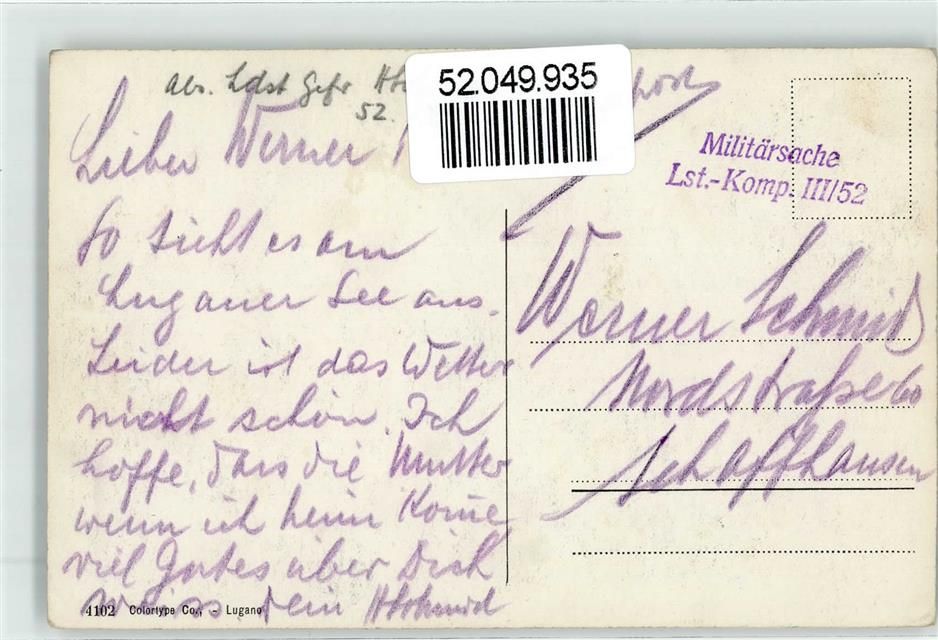 Abs. Ldst Gefr
52.
52.049.935
Lieber Werner
So sieht es am
Luganer See aus.
Leider ist das Wetter
nicht schön. Ich
hoffe, dass die Mutter
wenn ich heim kome
viel Gutes über Dich
weiss, dein HSchmid
4102 Colortype Co., - Lugano
Militärsache
Lst.-Komp. III/52
Werner Schmid
Nordstraße 60
Schaffhausen